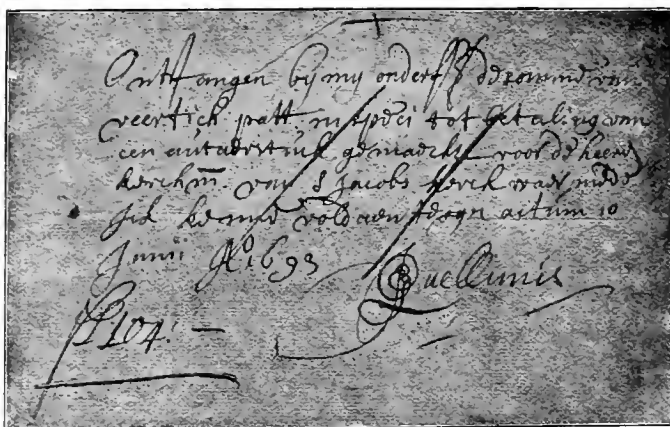 Ontfangen bij mij onderss de somme van
veertich patt in specei tot betaling van
een autaerstuk gemackt voor de heere
kerckm. van S Jacobs kerck waer mede
ick kenne voldaen te syn actum 10
Junii Ao 1693 Quellinus
104: —